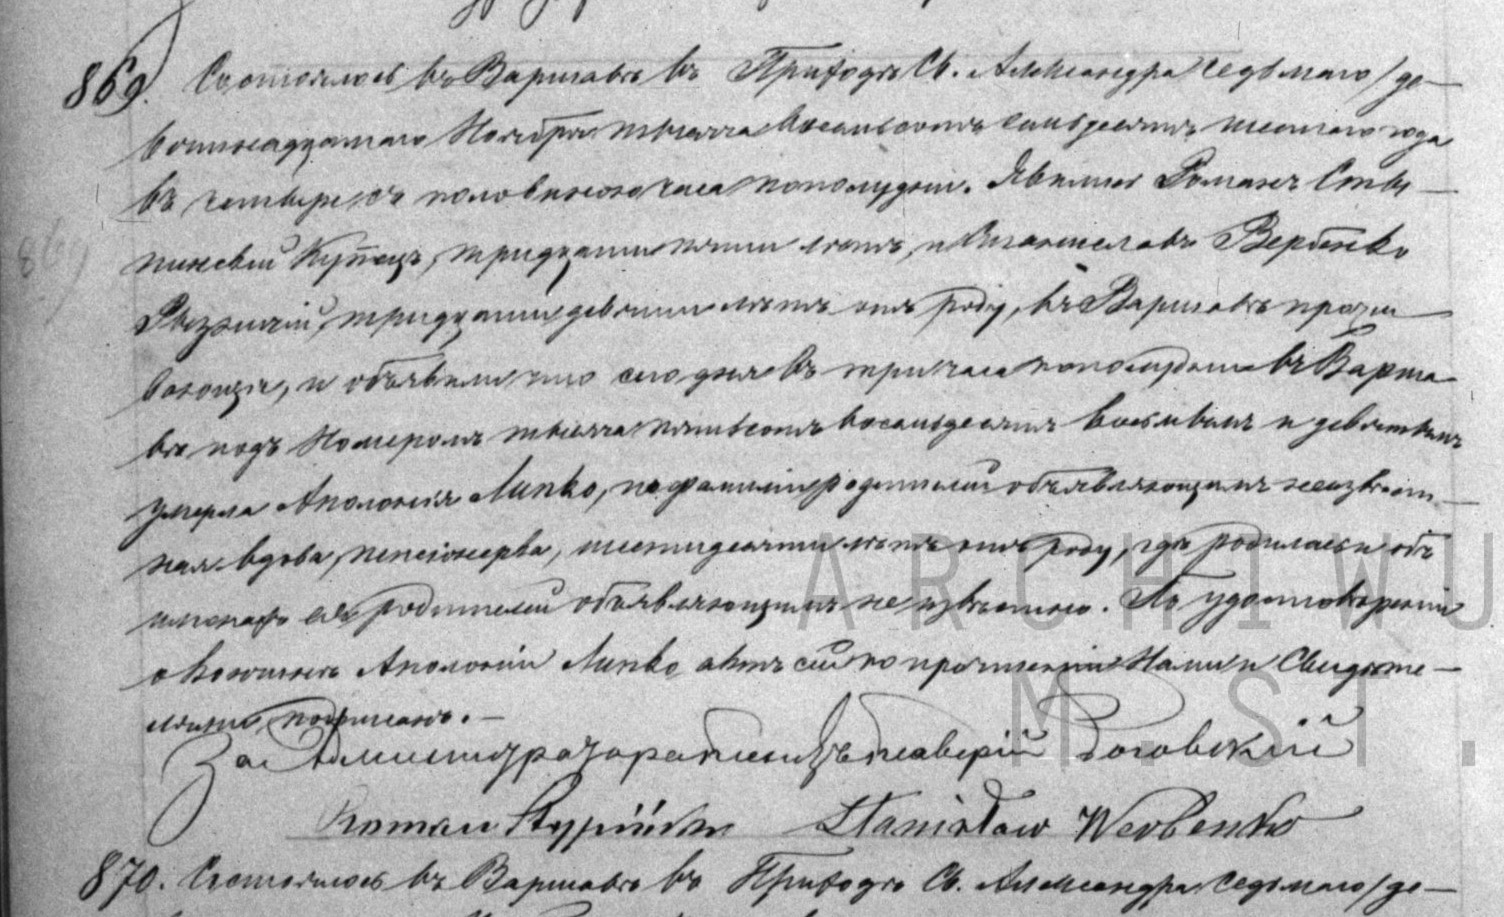 869. Состоялось въ Варшавѣ въ Приходѣ Св. Александра седьмаго/де-
вятнадцатаго Ноября тысяча восемьсотъ семьдесятъ шестаго года
въ четверть половиною часа пополудни. Явился Романъ Сты-
пинскій Купецъ, тридцати пяти лѣтъ, и Станиславъ Вербенко
тридцати девяти лѣтъ отъ роду, въ Варшавѣ прожи
вающіе, и объявили что сего дня въ три часа пополудни въ Варша
вѣ подъ Номеромъ тысяча пятьсотъ восемьдесятъ восьмымъ и девятымъ
умерла Аполонія Липко, по фамиліи родителей объявляющимъ неизвѣст-
ная вдова, пенсіонерка, шестидесяти лѣтъ отъ роду, гдѣ родилась и объ
именахъ ея родителей объявляющимъ неизвѣстно. По удостовѣреніи
о кончинѣ Аполоніи Липко, актъ сей по прочтеніи Нами и Свидѣте-
лями подписанъ.-
За Администратора Ксаверій Роговскій
Roman Stypiński Stanisław Werbenko
870. Состоялось въ Варшавѣ въ Приходѣ Св. Александра седьмаго/де-
ARCHIWU
M.ST.